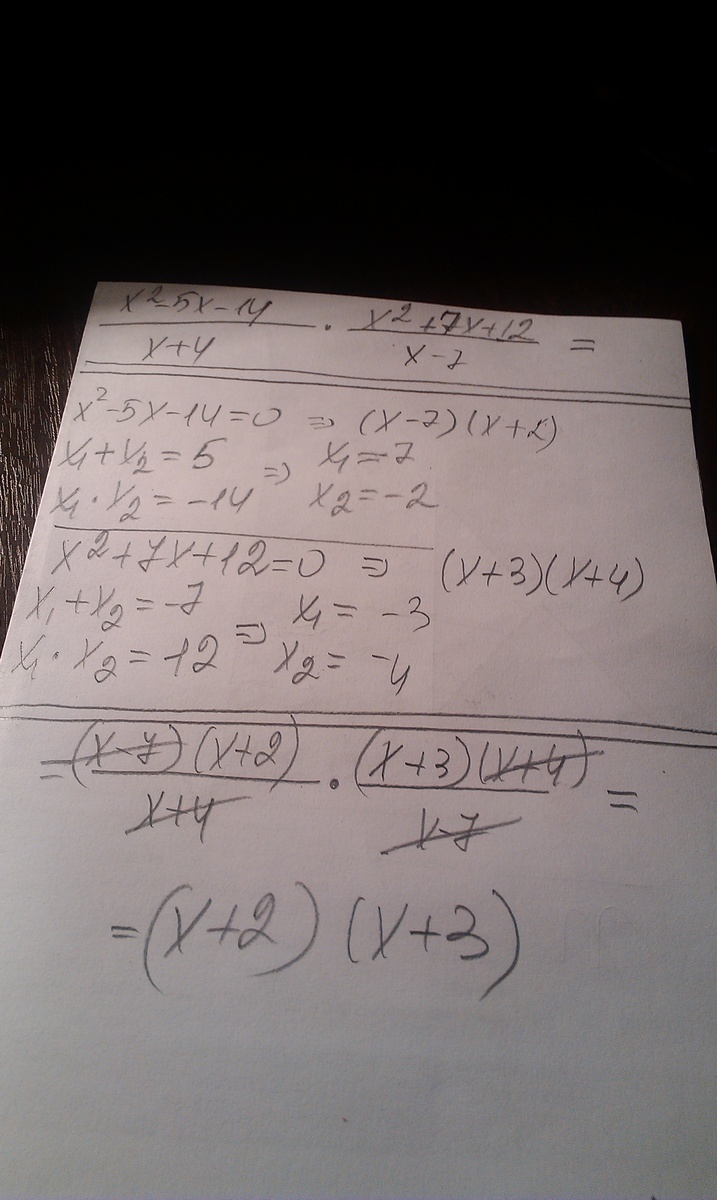 x²-5x-14 / x+4 · x²+7x+12 / x-7 =
x²-5x-14=0 ⇒ (x-7)(x+2)
x₁+x₂=5 ⇒ x₁=7
x₁·x₂=-14 x₂=-2
x²+7x+12=0 ⇒ (x+3)(x+4)
x₁+x₂=-7 ⇒ x₁=-3
x₁·x₂=12 x₂=-4
= (x-7)(x+2) / x+4 · (x+3)(x+4) / x-7 =
=(x+2)(x+3)